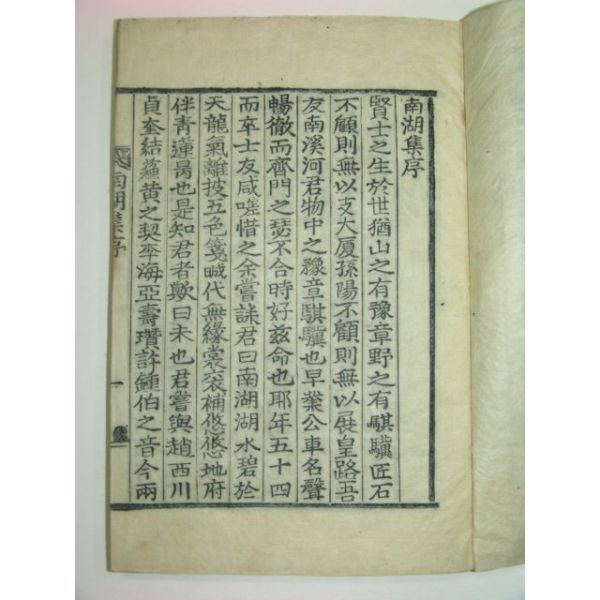 南湖集序
賢士之生於世猶山之有豫章野之有騏驥匠石
不顧則無以支大厦孫陽不顧則無以展皇路吾
友南溪河君物中之豫章騏驥也早業公車名聲
暢徹而齊門之瑟不合時好玆命也耶年五十四
而卒士友咸嗟惜之余嘗誄君曰南湖湖水碧於
天龍氣離披五色箋晠代無緣裳衮補悠悠地府
伴青蓮昺也是知君者歟曰未也君嘗與趙西川
貞奎結蘓黄之契李海亞壽瓚許鍾伯之音今兩
南湖集序
一